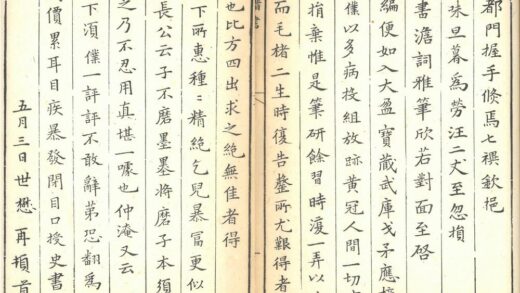 都門握手倐焉七禩歉挹
昧旦暮為勞汪二丈至忽損
書澹詞雅筆欣若對面至啓
編便如入大盈寶藏武庫戈矛應接
僕以多病投組放跡黃冠人間一切
捐棄惟是筆研餘習時復一弄以
而毛楮二生時復告罄所尤艱得者
也比方四出求之絶無佳者得
下所惠種〻精絶乞兒暴富更似
長公云子不磨墨墨將磨子本須
之乃不忍用真堪一噱也仲淹又云
下湏僕一評評不敢辭第恐翻為
價累耳目疾暴發閉目口授史書
五月三日世懋再頓首